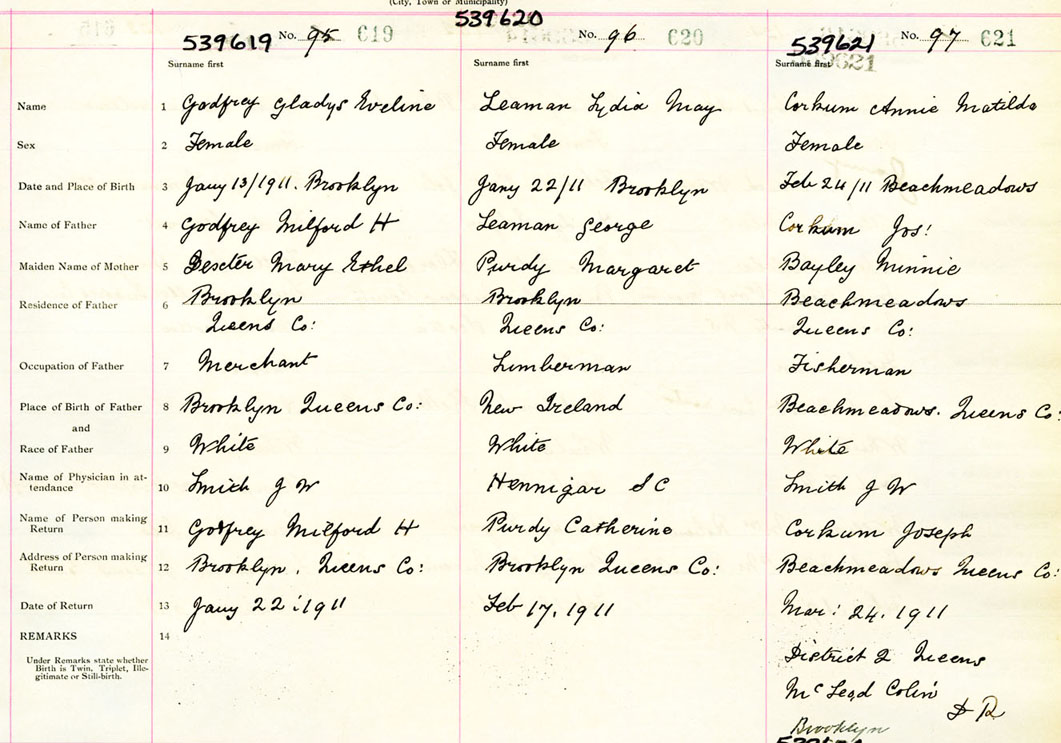 (City, Town or Municipality)
539619 No. 95 619
539620 No. 96 620
539621 No. 97 621
Surname first Surname first Surname first
Name 1 Godfrey Gladys Eveline Leaman Lydia May Corkum Annie Matilda
Sex 2 Female Female Female
Date and Place of Birth 3 Jany 13/1911. Brooklyn Jany 22/11 Brooklyn Feb 24/11 Beachmeadows
Name of Father 4 Godfrey Milford H Leaman George Corkum Jos!
Maiden Name of Mother 5 Dexter Mary Ethel Purdy Margaret Bayley Minnie
Residence of Father 6 Brooklyn Brooklyn Beachmeadows
Queens Co: Queens Co: Queens Co:
Occupation of Father 7 Merchant Lumberman Fisherman
Place of Birth of Father 8 Brooklyn Queens Co: New Ireland Beachmeadows. Queens Co:
and
Race of Father 9 White White White
Name of Physician in at-
tendance 10 Smith J W Hennigar S C Smith J W
Name of Person making
Return 11 Godfrey Milford H Purdy Catherine Corkum Joseph
Address of Person making
Return 12 Brooklyn. Queens Co: Brooklyn Queens Co: Beachmeadows Queens Co:
Date of Return 13 Jany 22:1911 Feb 17, 1911 Mar: 24. 1911
REMARKS 14
Under Remarks state whether
Birth is Twin, Triplet, Ille-
gitimate or Still-birth.
District 2 Queens
McLeod Colin
D R
Brooklyn